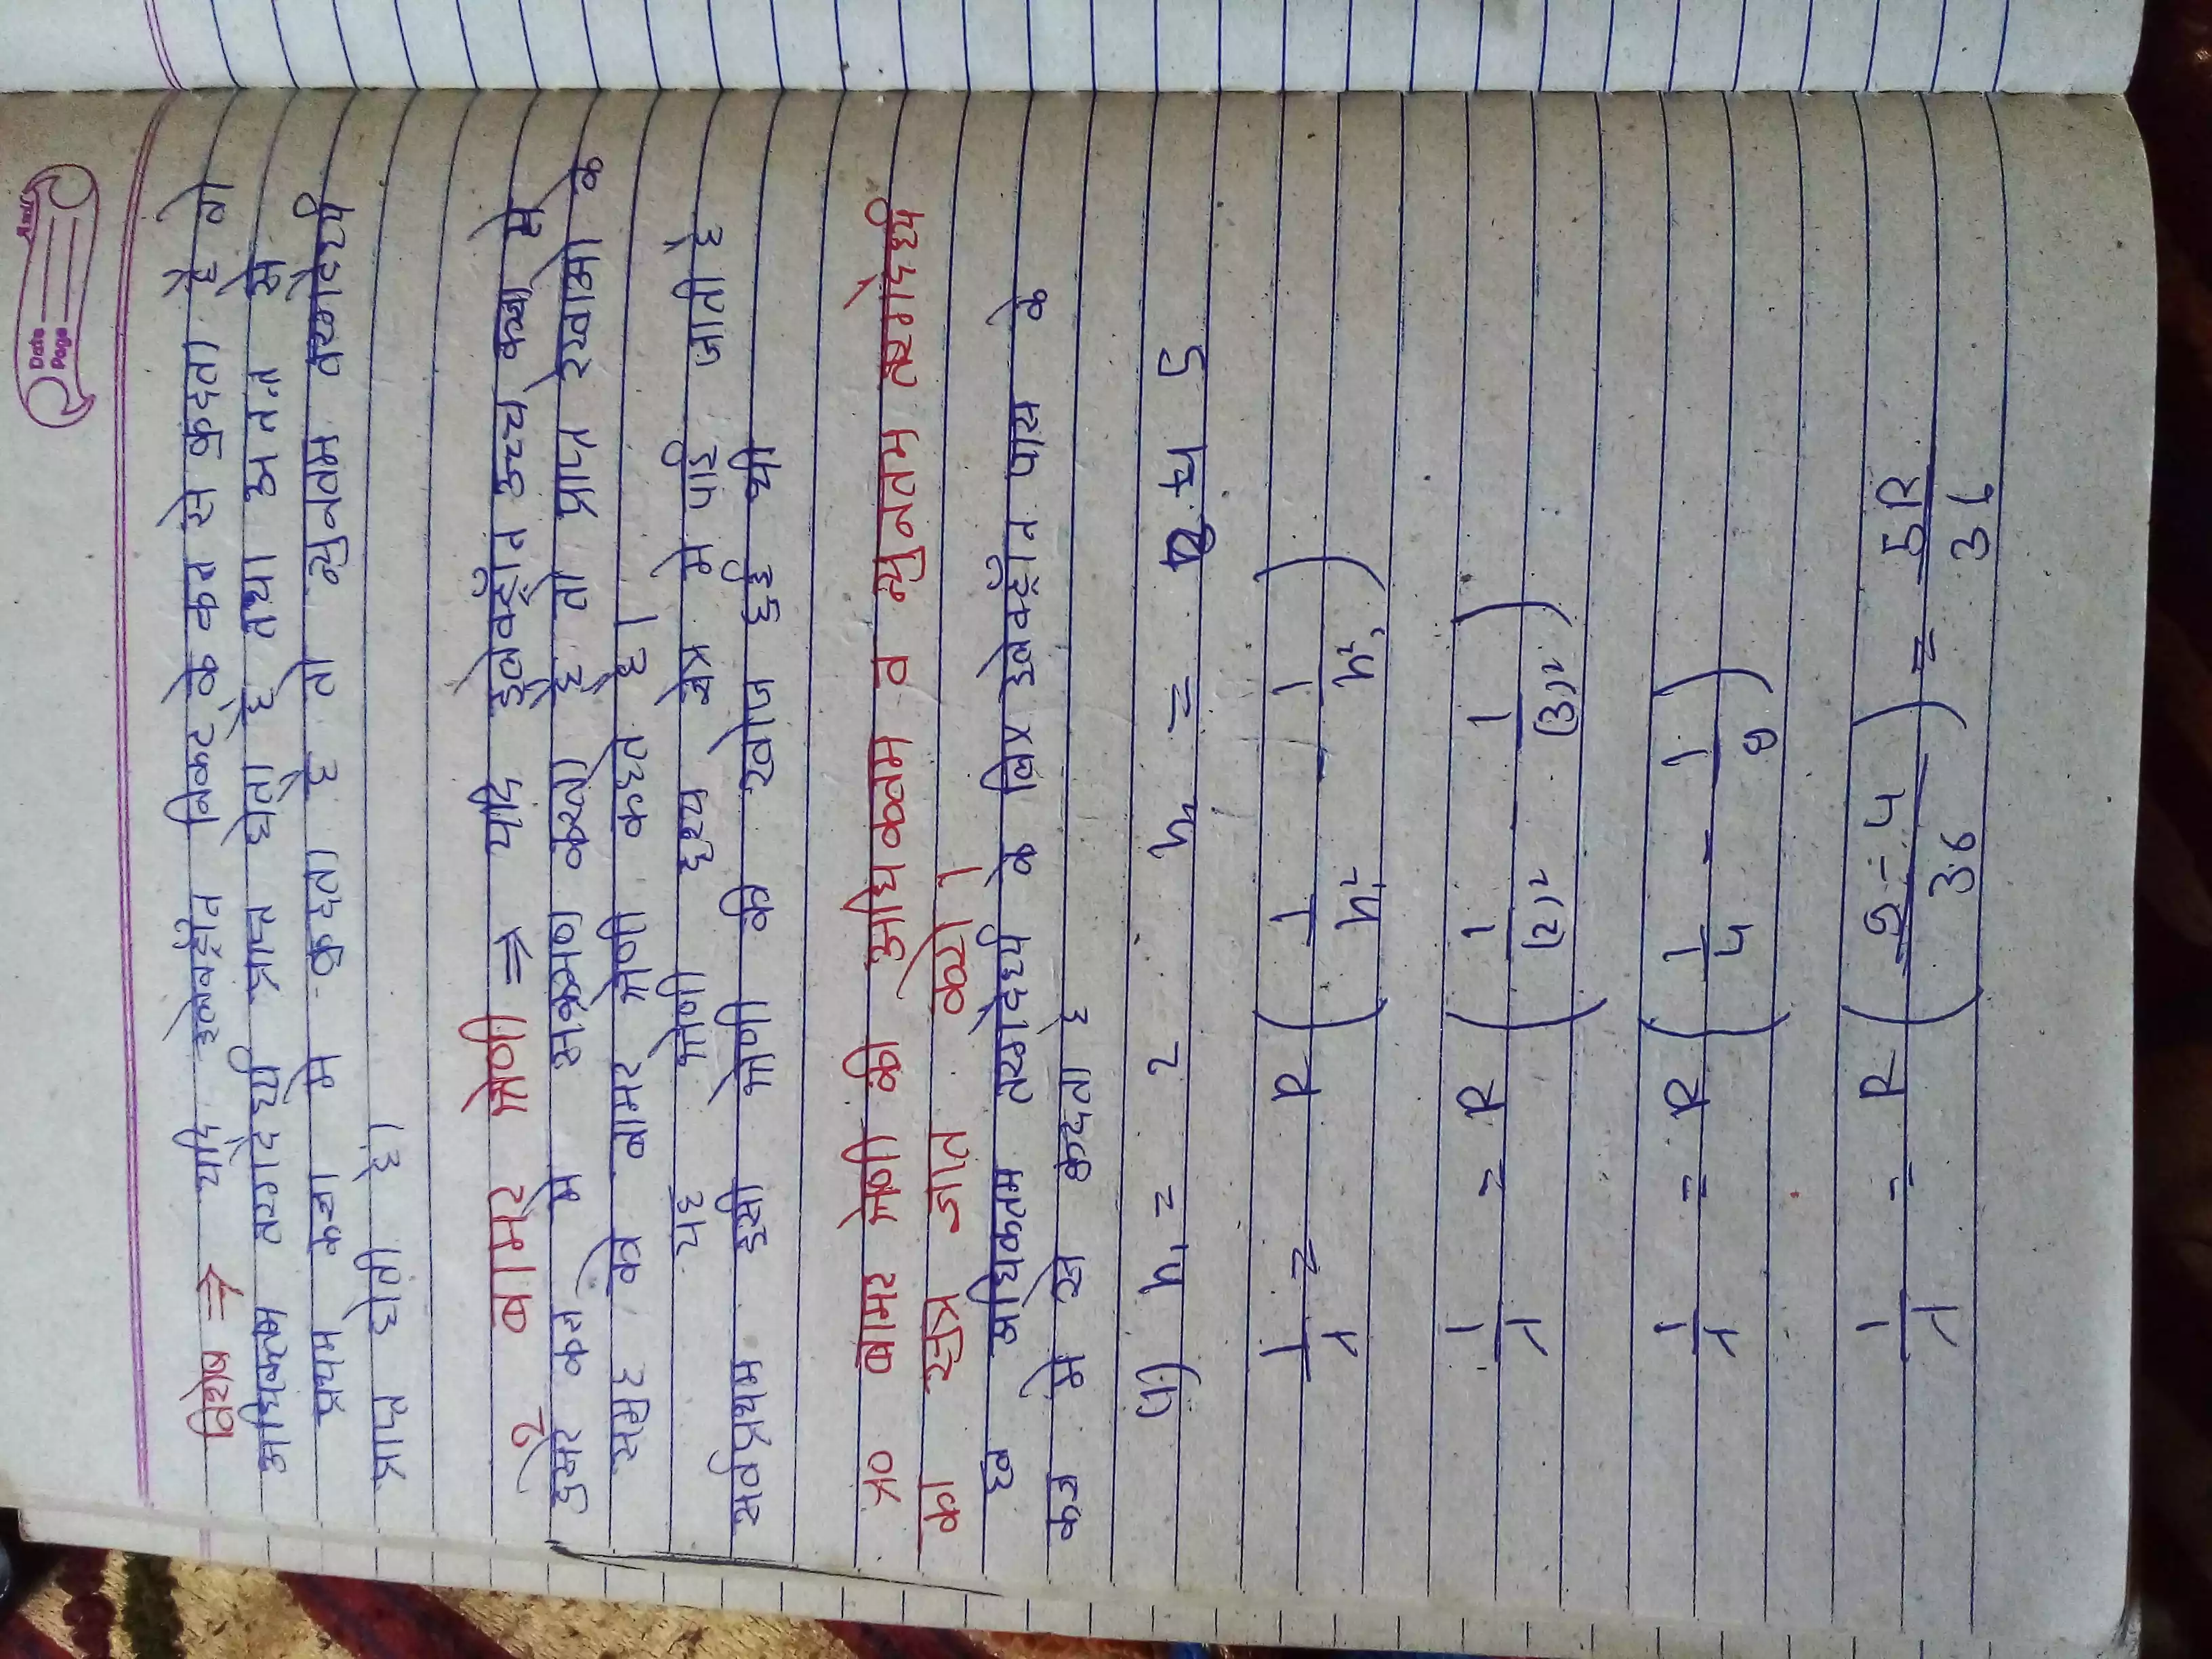 Date
Page
विशेष ⇒ यदि इलेक्ट्रॉन निकट के कक्ष से कुदता है तो
अधिकतम तरंगदैर्घ्य प्राप्त होता है तथा अनन्त से
प्रथम कक्षा मे कुदता है तो न्युनतम तरंगदैर्घ्य
प्राप्त होती है।
2 बामर श्रेणी ⇒ यदि इलेक्ट्रॉन उच्च कक्षा से
दुसरे कक्ष मे संक्रमण करता है तो प्राप्त रेखाओ के
समुह को बामर श्रेणी कहते है।
यह श्रेणी दृश्य क्षेत्र मे पाई जाती है
सर्वप्रथम इसी श्रेणी की खोज हुई थी
प्र० बामर श्रेणी की अधिकतम व न्युनतम तरंगदैर्घ्य
का सुत्र ज्ञात करो।
हल अधिकतम तरंगदैर्घ्य के लिए इलेक्ट्रॉन पास के
कक्ष मे से कुदता है
n₁ = 2 n₂ =
1/λ = R ( 1/n₁² - 1/n₂² )
1/λ = R ( 1/(2)² - 1/(3)² )
1/λ = R ( 1/4 - 1/9 )
1/λ = R ( 9-4/36 ) = 5R/36